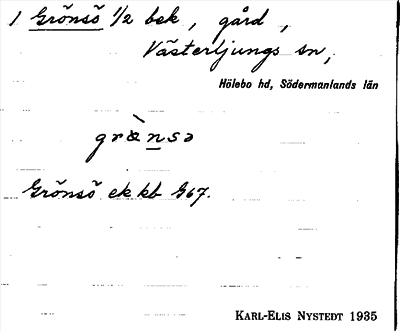 1 Grönsö 1/2 bek, gård,
Västerljungs sn,
Hölebo hd, Södermanlands län
grònsə
Grönsö ek kb 967.
KARL-ELIS NYSTEDT 1935